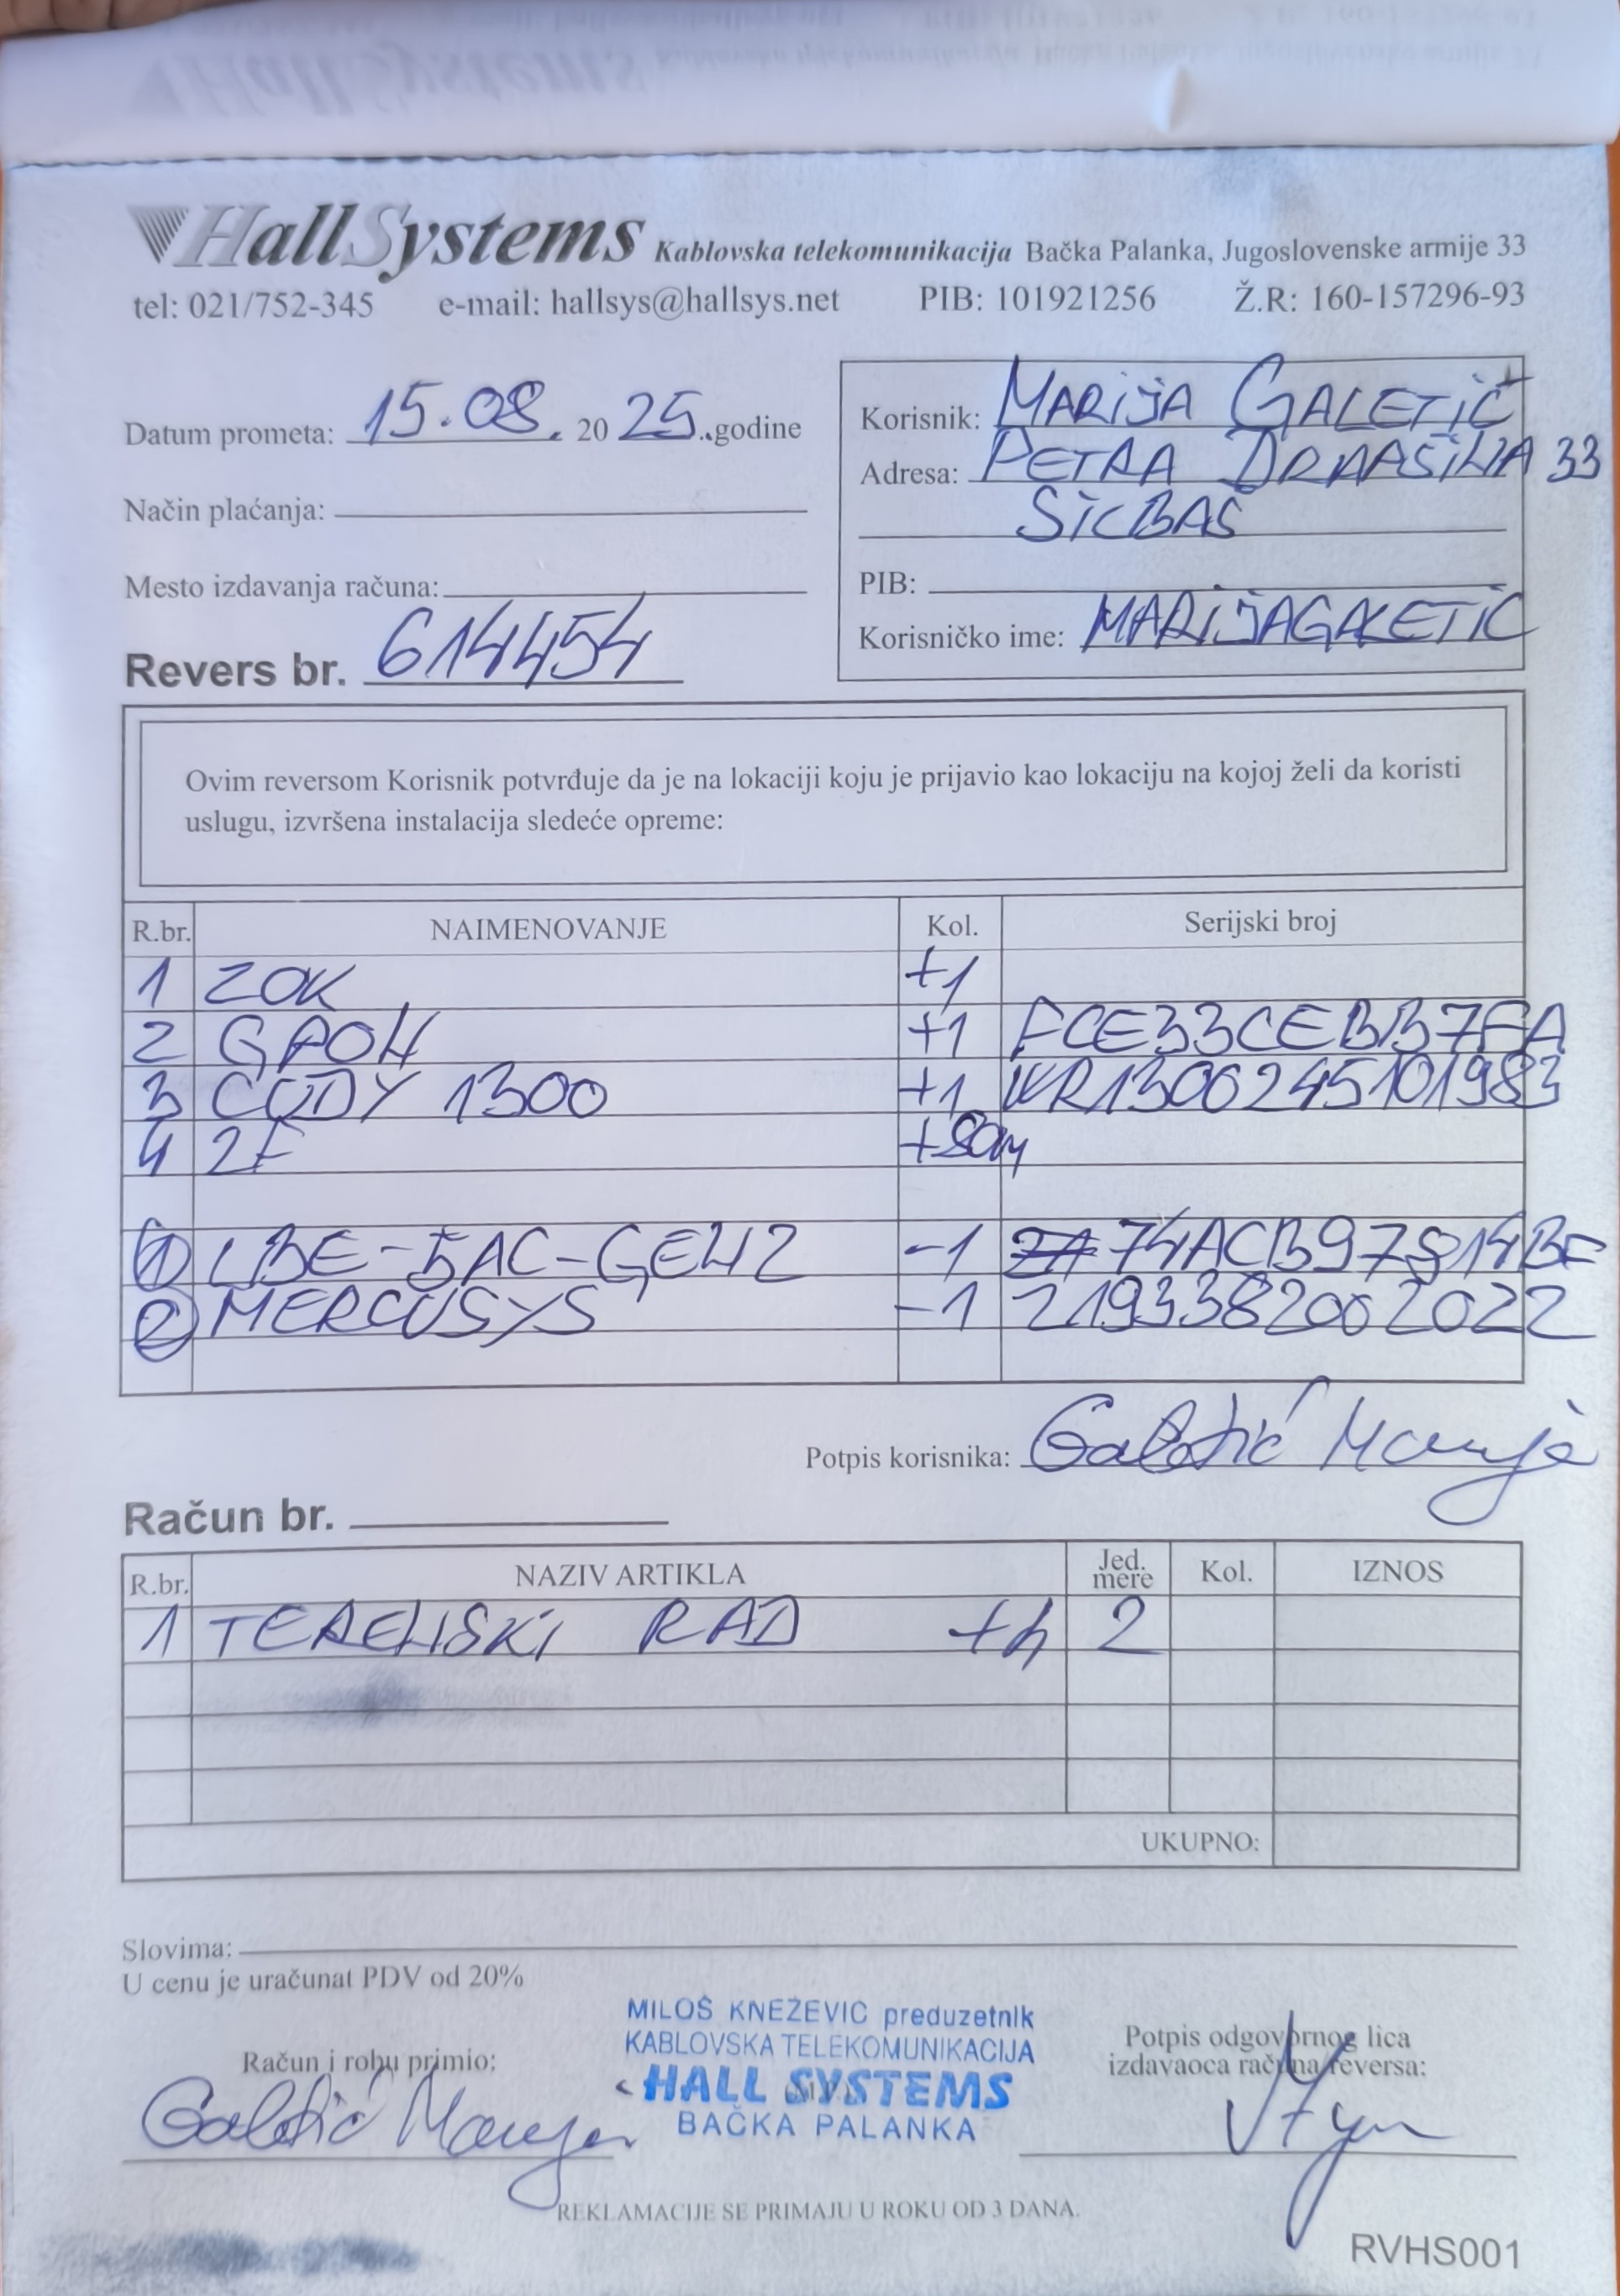 HallSystems Kablovska telekomunikacija Bačka Palanka, Jugoslovenske armije 33
tel: 021/752-345 e-mail: hallsys@hallsys.net PIB: 101921256 Ž.R: 160-157296-93
Datum prometa: 15.08. 2025. godine
Način plaćanja:
Mesto izdavanja računa:
Revers br. 614454
Korisnik: MARIJA GALETIĆ
Adresa: PETRA 33
PIB:
Korisničko ime: MARIJAGALETIC
Ovim reversom Korisnik potvrđuje da je na lokaciji koju je prijavio kao lokaciju na kojoj želi da koristi
uslugu, izvršena instalacija sledeće opreme:
R.br. NAIMENOVANJE Kol. Serijski broj
1 ZOK +1
2 GPON +1 FCE33CEBB7FA
3 CUDY 1300 +1 WR1300245101983
4 2F +80m
1 LBE-5AC-GEN2 -1 74ACB97814BF
2 MERCUSYS -1 2193382002022
Potpis korisnika: Galetić Marija
Račun br.
R.br. NAZIV ARTIKLA Jed. mere Kol. IZNOS
1 TERENSKI RAD +h 2
UKUPNO:
Slovima:
U cenu je uračunat PDV od 20%
MILOŠ KNEŽEVIĆ preduzetnik
KABLOVSKA TELEKOMUNIKACIJA
HALL SYSTEMS
BAČKA PALANKA
Račun i robu primio:
Galetić Marija
Potpis odgovornog lica
izdavaoca računa/reversa:
REKLAMACIJE SE PRIMAJU U ROKU OD 3 DANA.
RVHS001